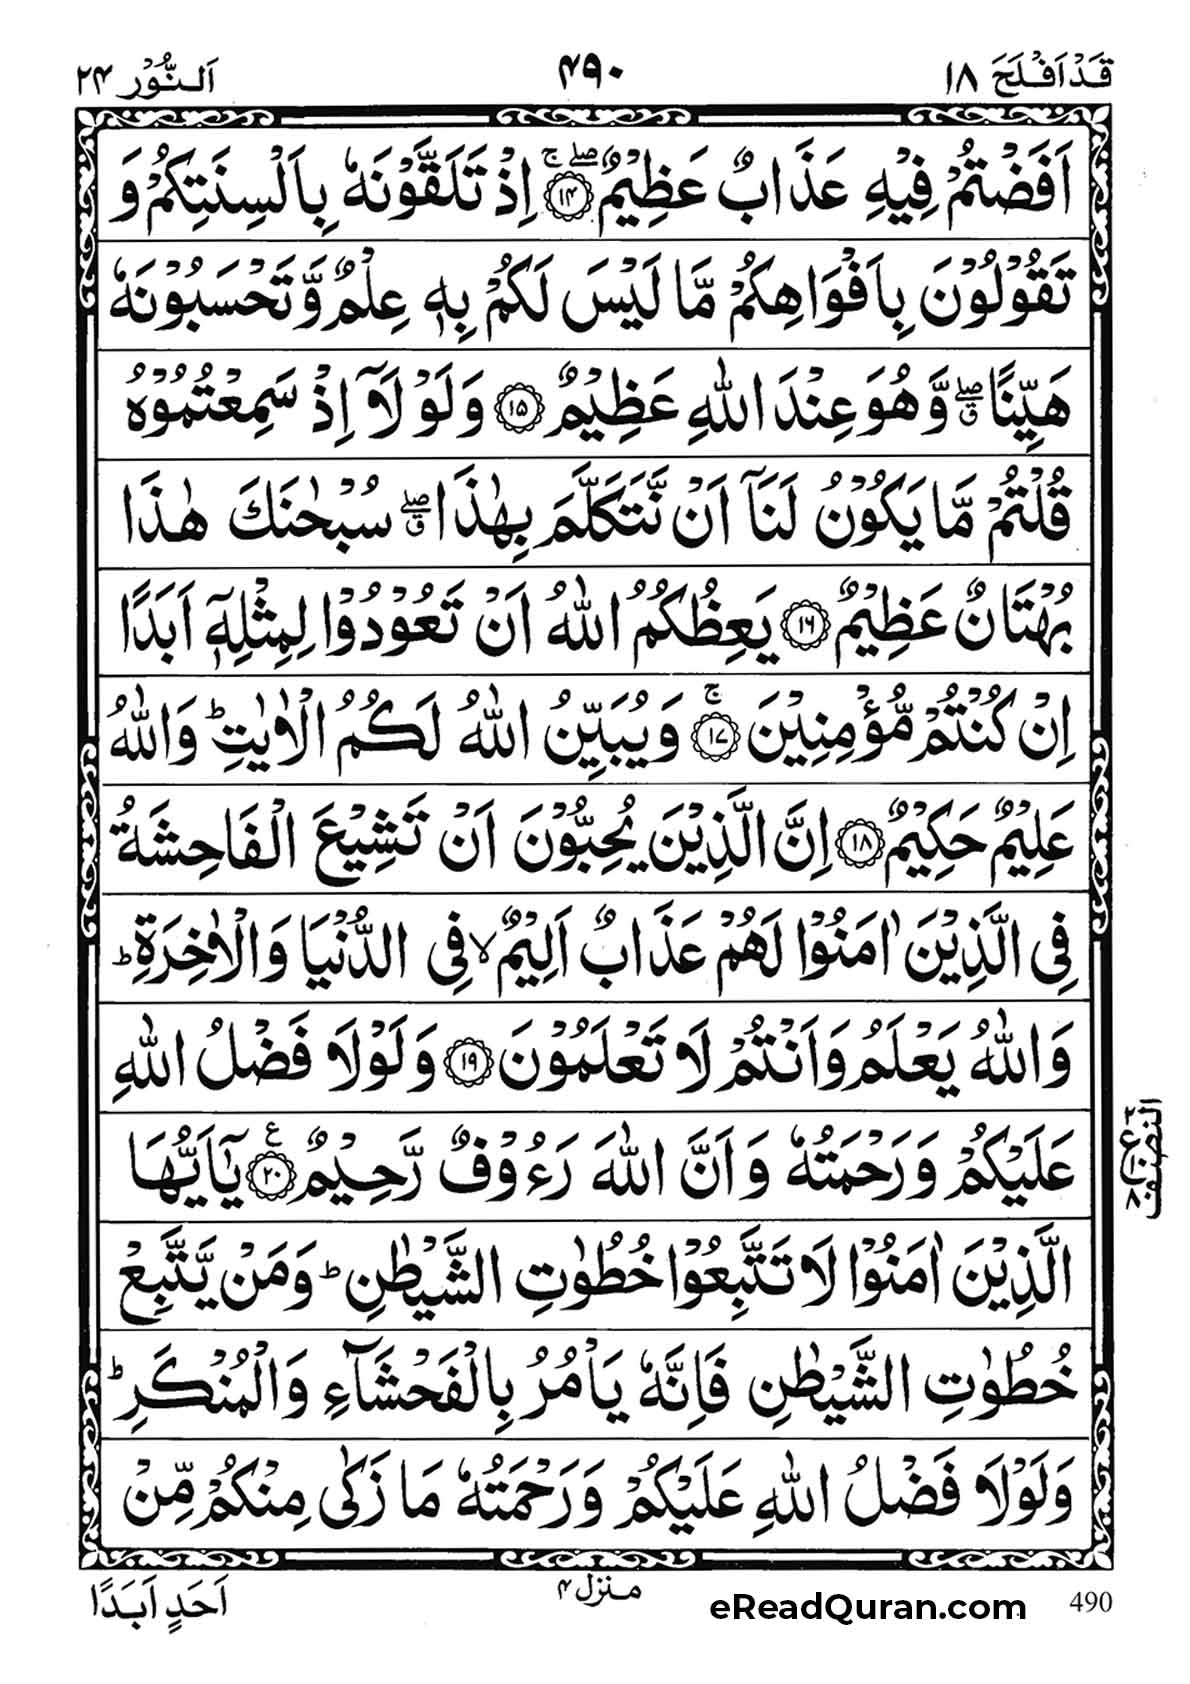 قَدْ اَفْلَحَ ١٨ ٤٩٠ اَلنُّوْر ٢٤
اَفَضْتُمْ فِيْهِ عَذَابٌ عَظِيْمٌ ۖۚ ۝١٤ اِذْ تَلَقَّوْنَهٗ بِاَلْسِنَتِكُمْ وَ
تَقُوْلُوْنَ بِاَفْوَاهِكُمْ مَّا لَيْسَ لَكُمْ بِهٖ عِلْمٌ وَّ تَحْسَبُوْنَهٗ
هَيِّنًا ۖۗ وَّ هُوَ عِنْدَ اللّٰهِ عَظِيْمٌ ۝١٥ وَ لَوْ لَاۤ اِذْ سَمِعْتُمُوْهُ
قُلْتُمْ مَّا يَكُوْنُ لَنَاۤ اَنْ نَّتَكَلَّمَ بِهٰذَا ۖۗ سُبْحٰنَكَ هٰذَا
بُهْتَانٌ عَظِيْمٌ ۝١٦ يَعِظُكُمُ اللّٰهُ اَنْ تَعُوْدُوْا لِمِثْلِهٖۤ اَبَدًا
اِنْ كُنْتُمْ مُّؤْمِنِيْنَ ۚ ۝١٧ وَ يُبَيِّنُ اللّٰهُ لَكُمُ الْاٰيٰتِ ؕ وَ اللّٰهُ
عَلِيْمٌ حَكِيْمٌ ۝١٨ اِنَّ الَّذِيْنَ يُحِبُّوْنَ اَنْ تَشِيْعَ الْفَاحِشَةُ
فِي الَّذِيْنَ اٰمَنُوْا لَهُمْ عَذَابٌ اَلِيْمٌ ۙ فِي الدُّنْيَا وَ الْاٰخِرَةِ ؕ
وَ اللّٰهُ يَعْلَمُ وَ اَنْتُمْ لَا تَعْلَمُوْنَ ۝١٩ وَ لَوْ لَا فَضْلُ اللّٰهِ
عَلَيْكُمْ وَ رَحْمَتُهٗ وَ اَنَّ اللّٰهَ رَءُوْفٌ رَّحِيْمٌ ۝٢٠ ع يٰۤاَيُّهَا
الَّذِيْنَ اٰمَنُوْا لَا تَتَّبِعُوْا خُطُوٰتِ الشَّيْطٰنِ ؕ وَ مَنْ يَّتَّبِعْ
خُطُوٰتِ الشَّيْطٰنِ فَاِنَّهٗ يَاْمُرُ بِالْفَحْشَآءِ وَ الْمُنْكَرِ ؕ
وَ لَوْ لَا فَضْلُ اللّٰهِ عَلَيْكُمْ وَ رَحْمَتُهٗ مَا زَكٰى مِنْكُمْ مِّنْ
النصف
ع
اَحَدٍ اَبَدًا
منزل ٤
eReadQuran.com
490